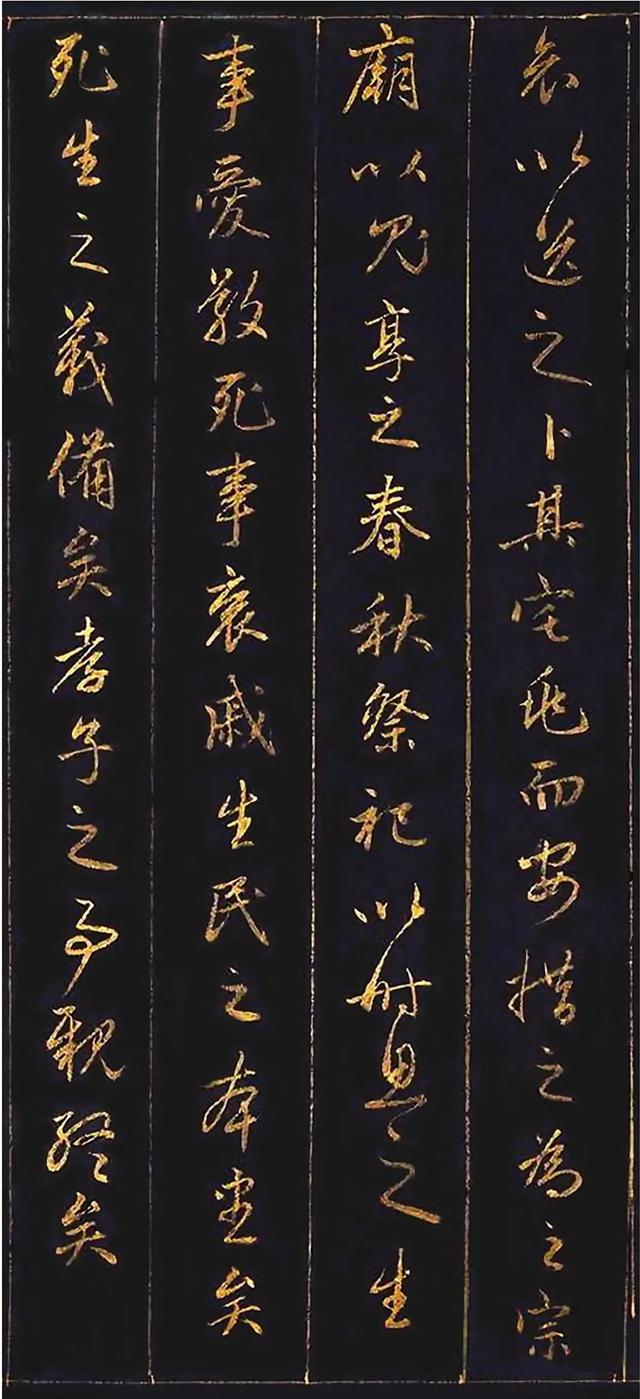 哀以送之卜其宅兆而安措之為之宗
廟以鬼享之春秋祭祀以時思之生
事愛敬死事哀戚生民之本盡矣
死生之義備矣孝子之事親終矣